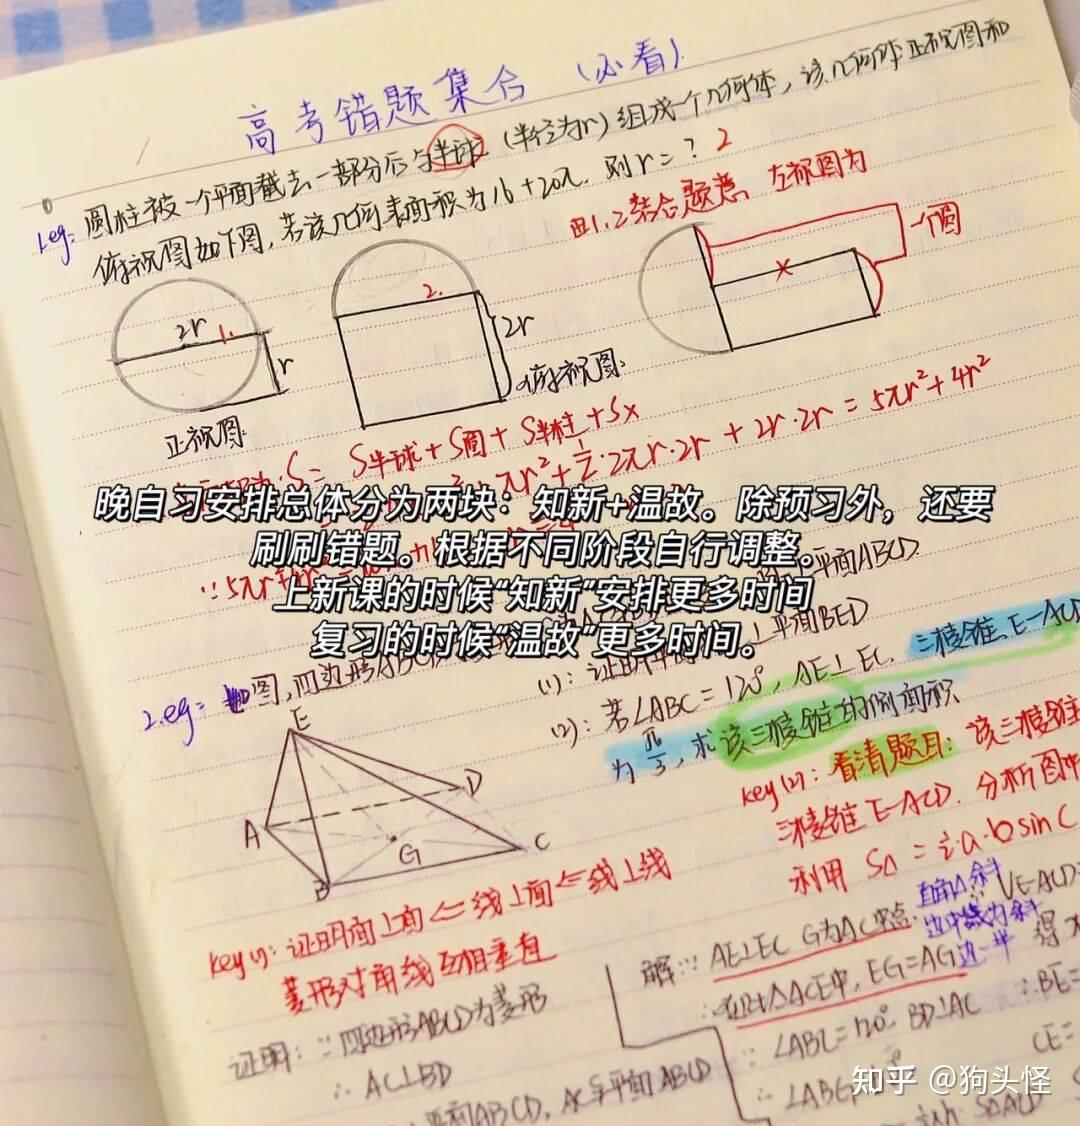 高考错题集合（必看）.
1.eg: 圆柱被一个平面截去一部分后与半球（半径为r）组成一个几何体，该几何体正视图和
俯视图如下图，若该几何表面积为16+20π. 则r=? 2
由1.2结合题意，左视图为
一个圆
2r 1. r
2. 2r
x
正视图
俯视图.
S = S半球+S圆+S半柱+Sx
πr²+½·2πr·2r + 2r·2r = 5πr²+4r²
晚自习安排总体分为两块：知新+温故。除预习外，还要
刷刷错题。根据不同阶段自行调整。
上新课的时候“知新”安排更多时间
复习的时候“温故”更多时间。
平面ABCD
2.eg: 如图，四边形ABCD
(1): 证明 平面BED
(2): 若∠ABC=120°, AE⊥EC. 三棱锥E-ACD
为 π/3, 求该三棱锥的侧面积
E
A
B
C
D
G
key(2): 看清题目: 该三棱锥
三棱锥E-ACD. 分析图中
利用 S△ = ½a·bsinC
key(1): 证明面⊥面⇐线⊥面⇐线⊥线
菱形对角线互相垂直
证明: ∵四边形ABCD为菱形
∴ AC⊥BD
平面ABCD, AC与平面ABCD
直角△斜
边中线为斜
边一半
VE-ACD=
解: ∵ AE⊥EC G为AC中点.
∴在Rt△ACE中, EG=AG 得
∵ ∠ABC=120° BD⊥AC ∴BE=
∴ ∠ABG= CE=
S△ACD
知乎 @狗头怪